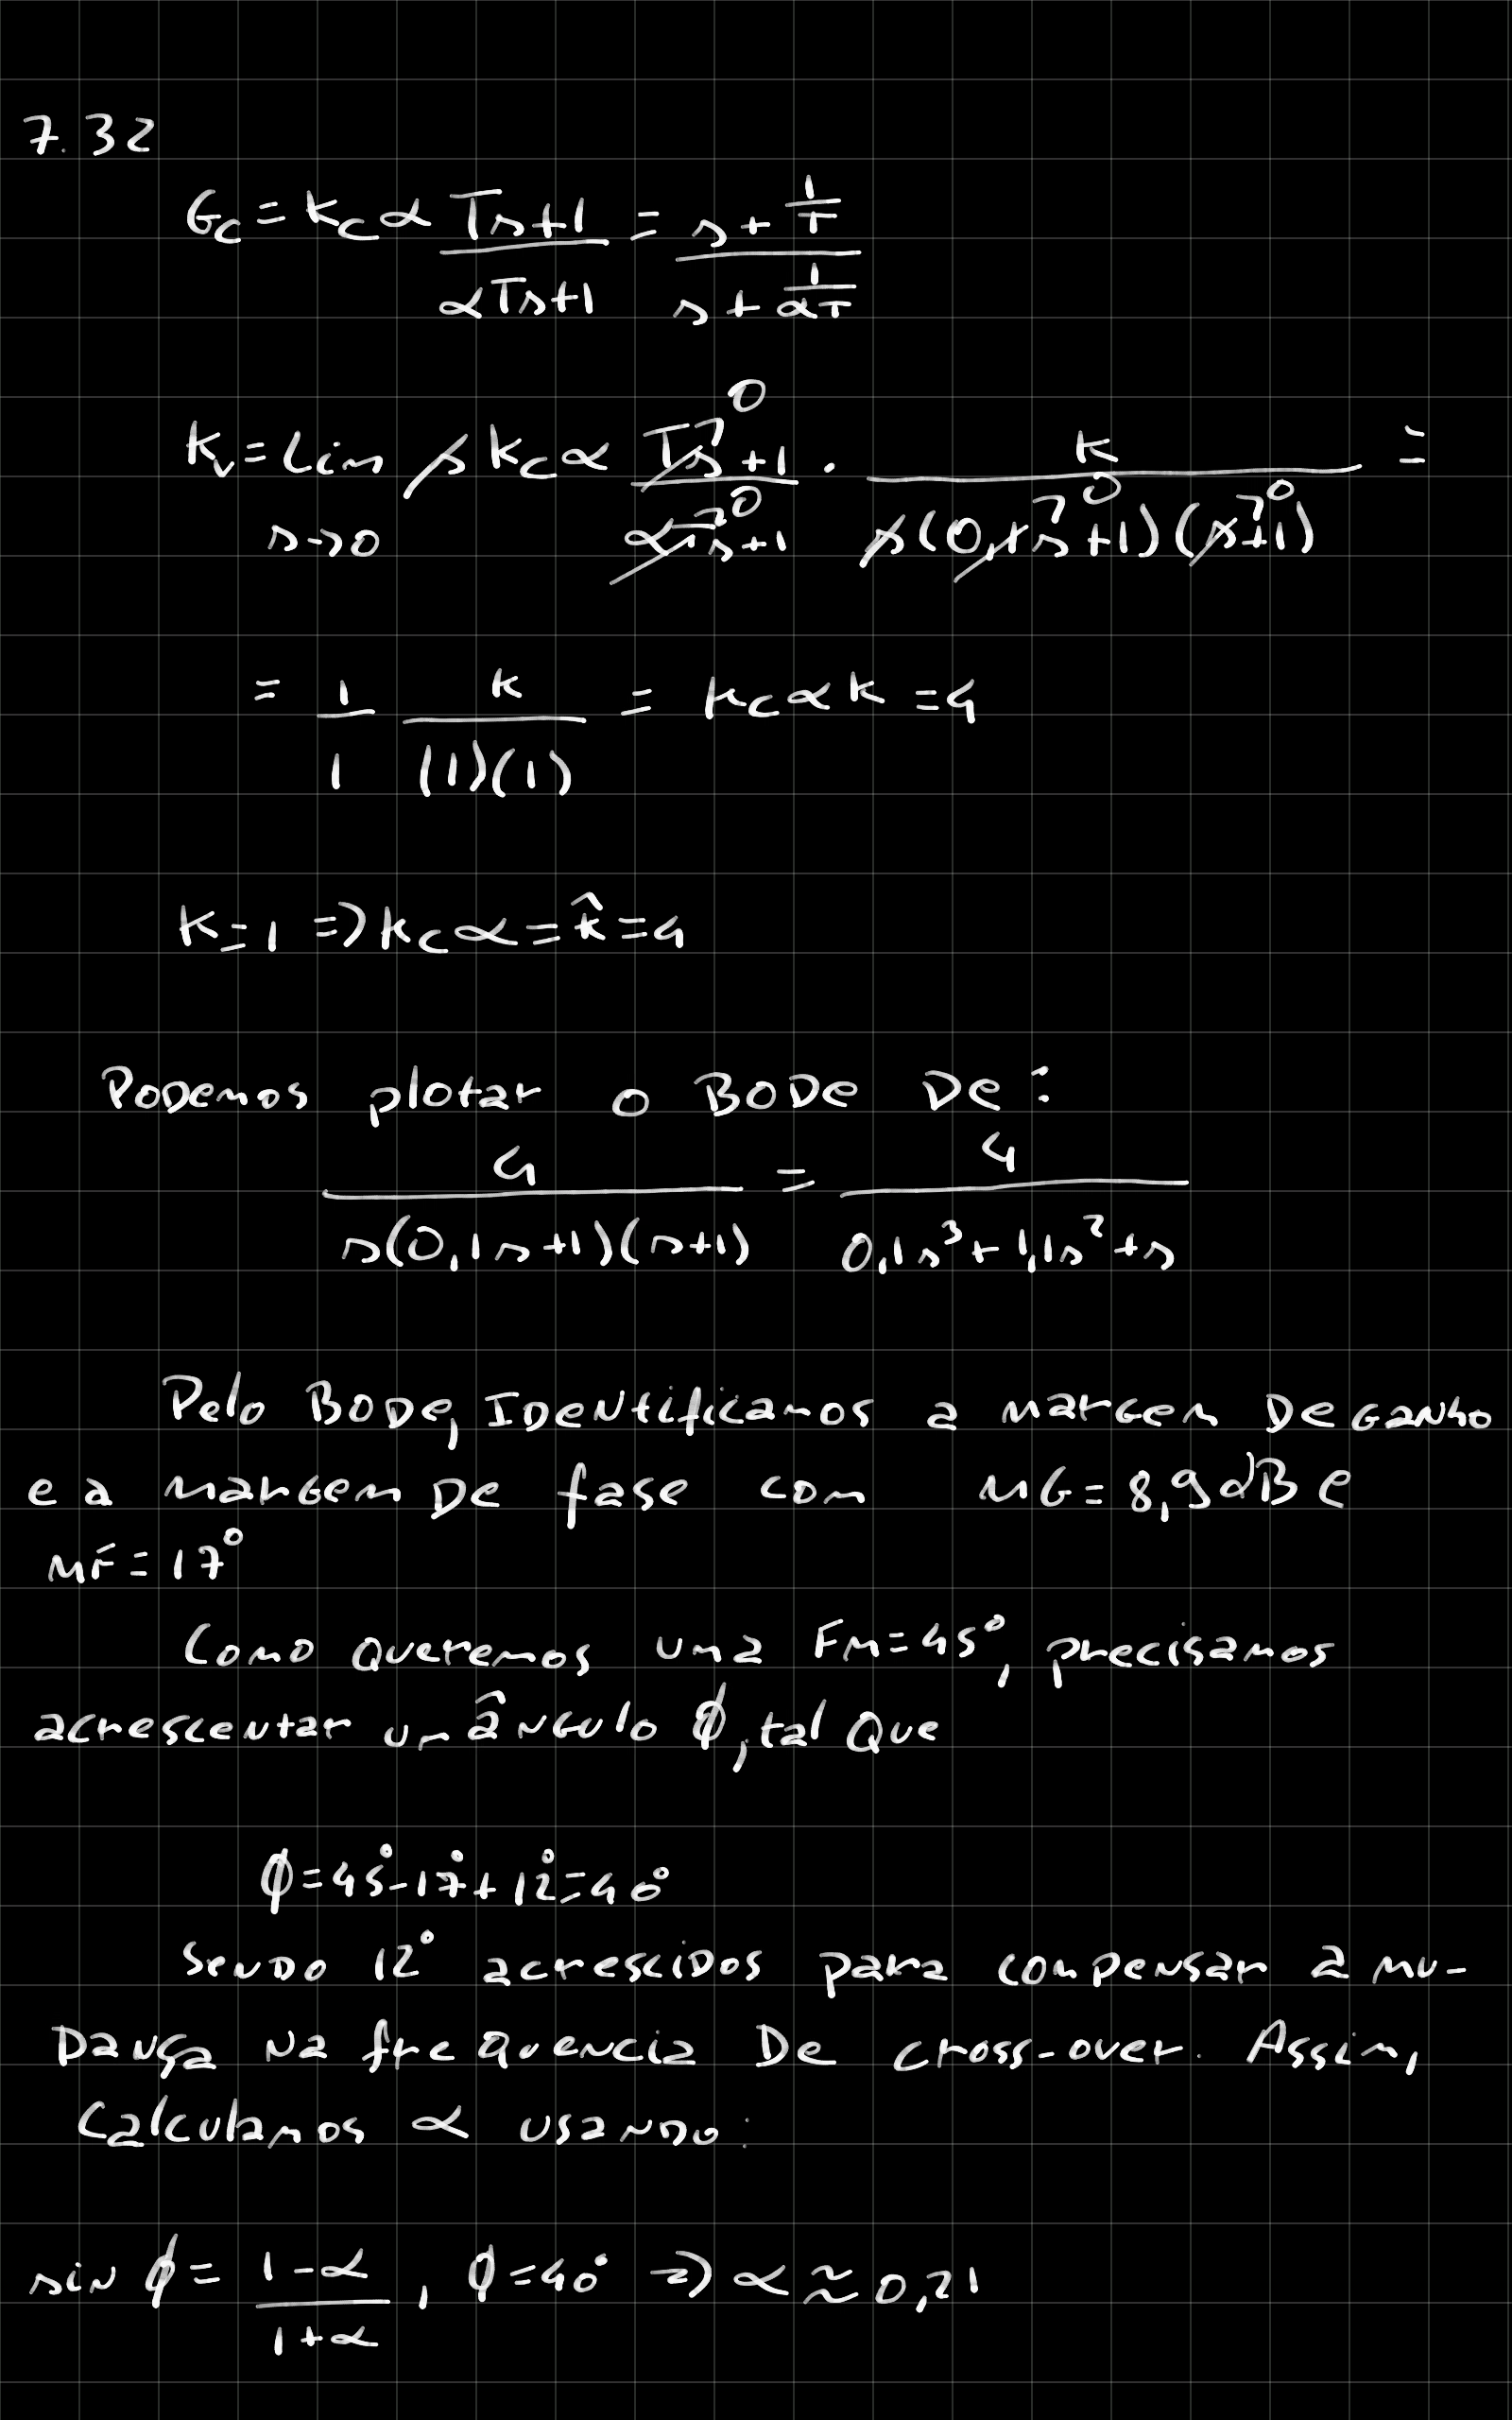 7.32
Gc = kcα (Ts+1)/(αTs+1) = (s + 1/T)/(s + 1/αT)
kv = Lim s→0 s kcα (Ts→0 + 1)/(αTs→0 + 1) · k/(s(0,1s→0 + 1)(s→0 + 1)) =
= 1/1 k/((1)(1)) = kcαk = 4
k=1 => kcα = k̂ = 4
Podemos plotar o BODE De:
4/(s(0,1s+1)(s+1)) = 4/(0,1s³ + 1,1s² + s)
Pelo BODe, IDentificamos a margem De ganho
e a margem De fase com MG = 8,9dB e
MF = 17°
Como queremos uma FM = 45°, precisamos
acrescentar um ângulo ϕ, tal Que
ϕ = 45° - 17° + 12° = 40°
Sendo 12° acrescidos para compensar a mu-
Dança na frequencia De cross-over. Assim,
Calculamos α usando:
sin ϕ = (1-α)/(1+α), ϕ = 40° => α ≈ 0,21